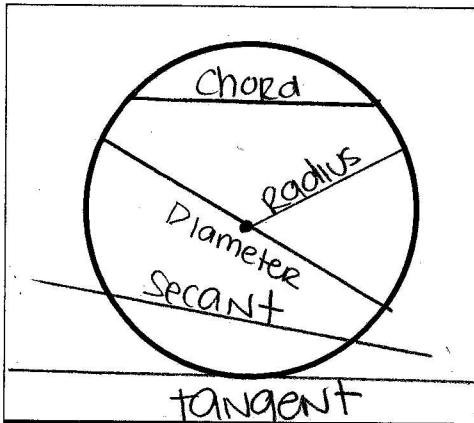 Chord
Radius
Diameter
Secant
tangent